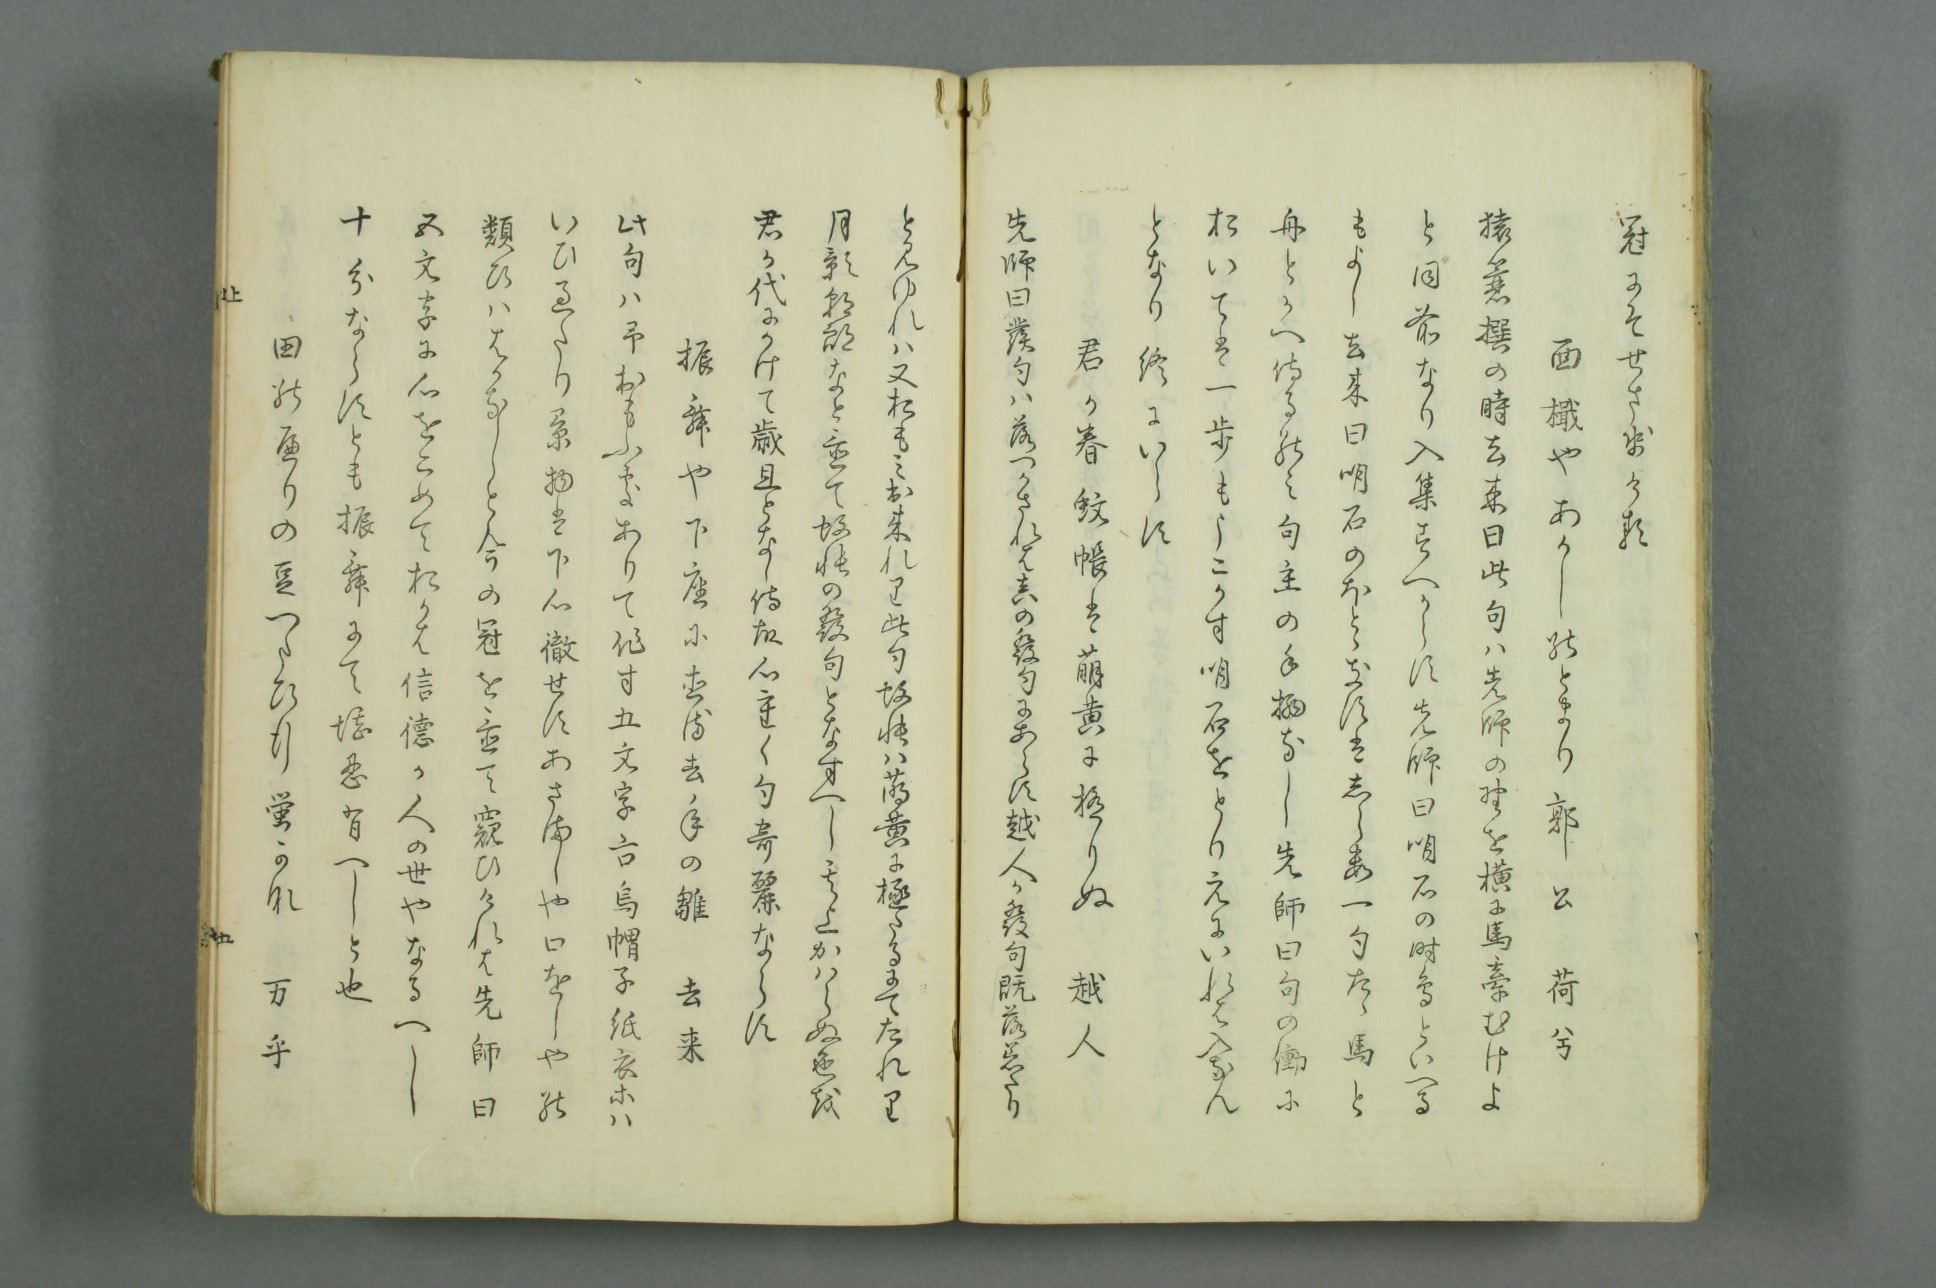 冠にそせさ
面楫やあかしのとまり郭公　荷兮
猿蓑撰の時去来曰此句ハ先師の野を横に馬牽むけよ
と同前なり入集すへからす先師曰明石の時鳥といへる
もよし去来曰明石のほとゝきすはしらす一句たゝ馬と
舟とかへ侍るのミ句主の手柄なし先師曰句の働に
おいては一歩もうこかす明石をとり元にいれは入なん
となり終にいらす
君か春蚊帳は萌黄に極りぬ　越人
先師曰発句ハ落つかされは真の発句にあらす越人か発句既落着たり
と見ゆれハ又おもミ出来れり此句蚊帳ハ萌黄に極たるにてたれり
月影朝朗なと置て蚊帳の発句となすへし其上かハらぬ色を
君か代にかけて歳旦となし侍故心重く句奇麗ならす
振舞や下座に直る去年の雛　去来
此句ハ予おもふ處ありて作す五文字古烏帽子紙衣等ハ
いひ過たり景物は下心徹せすあさましや口をしやの
類ひハはかなしと今の冠を置て窺ひけれは先師曰
五文字に心をこめておかは信徳か人の世やなるへし
十分ならすとも振舞にて堪忍有へしと也
田のへりの豆つたひ行蛍かな　万乎
上